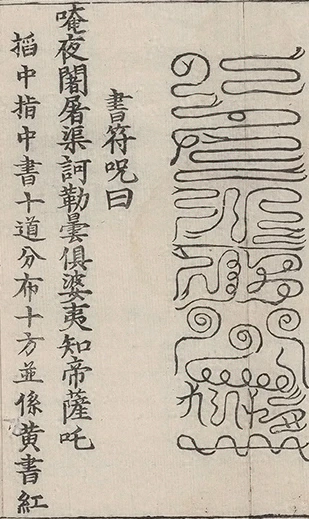 書符咒曰
唵夜闍屠渠訶勒曇俱婆夷知帝薩吒
搯中指中書十道分布十方並係黃書紅